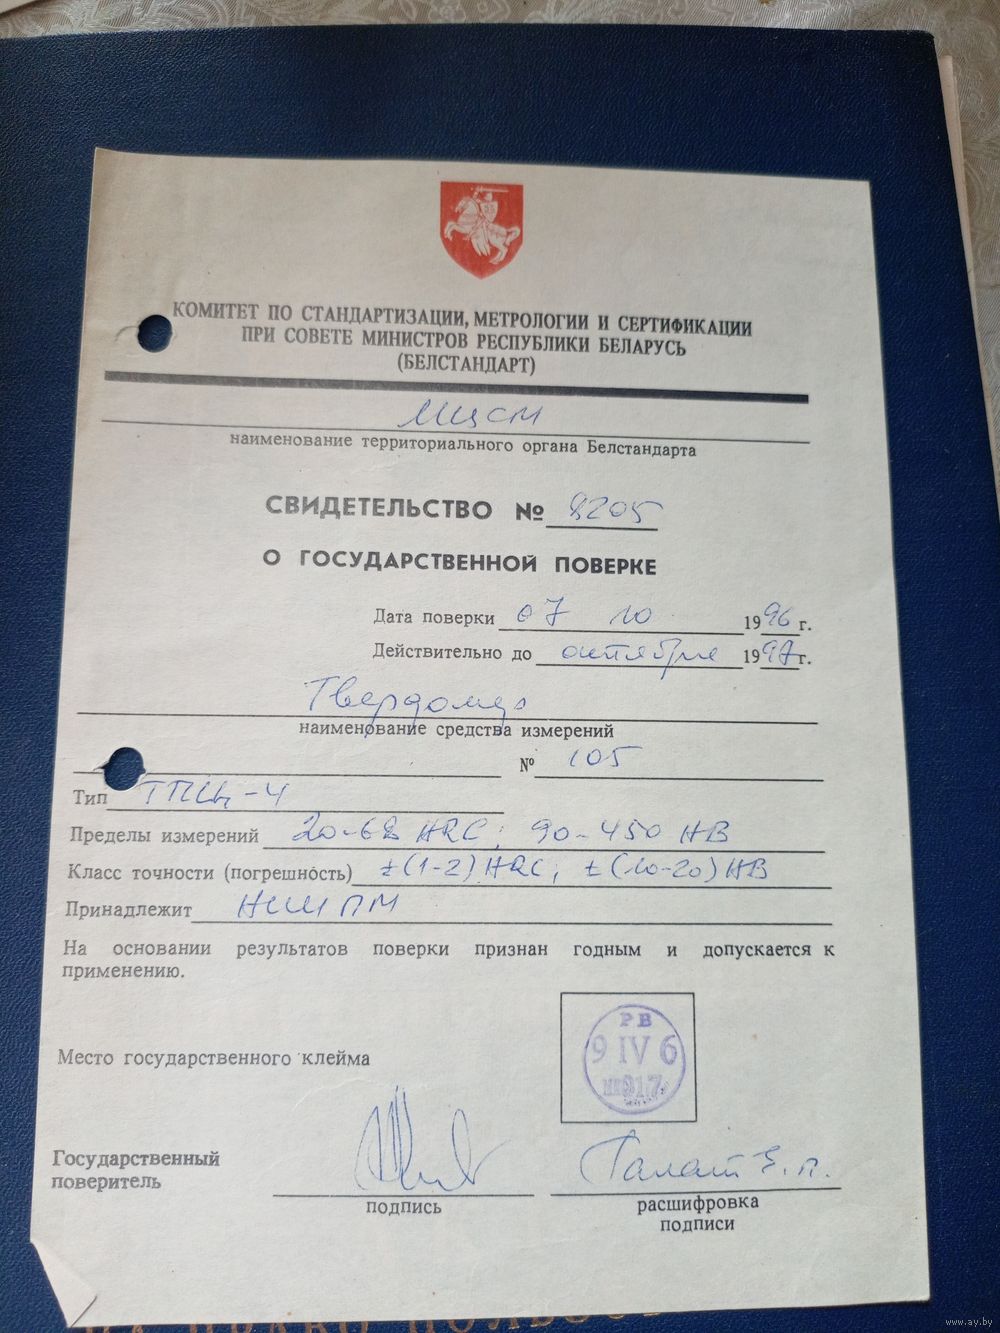 КОМИТЕТ ПО СТАНДАРТИЗАЦИИ, МЕТРОЛОГИИ И СЕРТИФИКАЦИИ
ПРИ СОВЕТЕ МИНИСТРОВ РЕСПУБЛИКИ БЕЛАРУСЬ
(БЕЛСТАНДАРТ)
МЦСМ
наименование территориального органа Белстандарта
СВИДЕТЕЛЬСТВО № 8205
О ГОСУДАРСТВЕННОЙ ПОВЕРКЕ
Дата поверки 07 10 1996 г.
Действительно до октября 1997 г.
Твердомер
наименование средства измерений
№ 105
Тип ТПЦ-4
Пределы измерений 20-68 HRC; 90-450 HB
Класс точности (погрешность) ±(1-2) HRC; ±(10-20) HB
Принадлежит НИИПМ
На основании результатов поверки признан годным и допускается к
применению.
РВ
Место государственного клейма 9 IV 6
917
Государственный
поверитель
Галат Е. П.
подпись расшифровка
подписи
www.ay.by